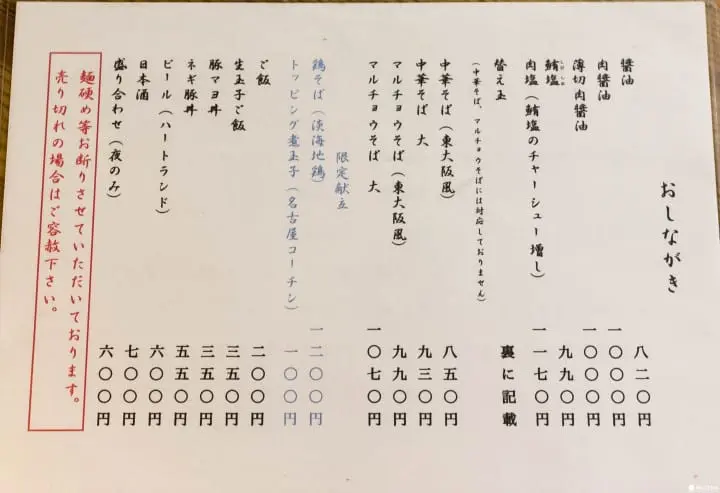 おしながき
醬油 八二〇円
肉醬油 一〇〇〇円
薄切肉醬油 一〇〇〇円
鮪塩 九九〇円
肉塩(鮪塩のチャーシュー増し) 一一七〇円
替え玉 裏に記載
(中華そば、マルチョウそばには対応しておりません)
中華そば(東大阪風) 八五〇円
中華そば 大 九三〇円
マルチョウそば(東大阪風) 九九〇円
マルチョウそば 大 一〇七〇円
限定献立
鶏そば(淡海地鶏) 一二〇〇円
トッピング煮玉子(名古屋コーチン) 一〇〇円
ご飯 二〇〇円
生玉子ご飯 三五〇円
豚マヨ丼 三五〇円
ネギ豚丼 五五〇円
ビール(ハートランド) 六〇〇円
日本酒 七〇〇円
盛り合わせ(夜のみ) 六〇〇円
麺硬め等お断りさせていただいております。
売り切れの場合はご容赦下さい。